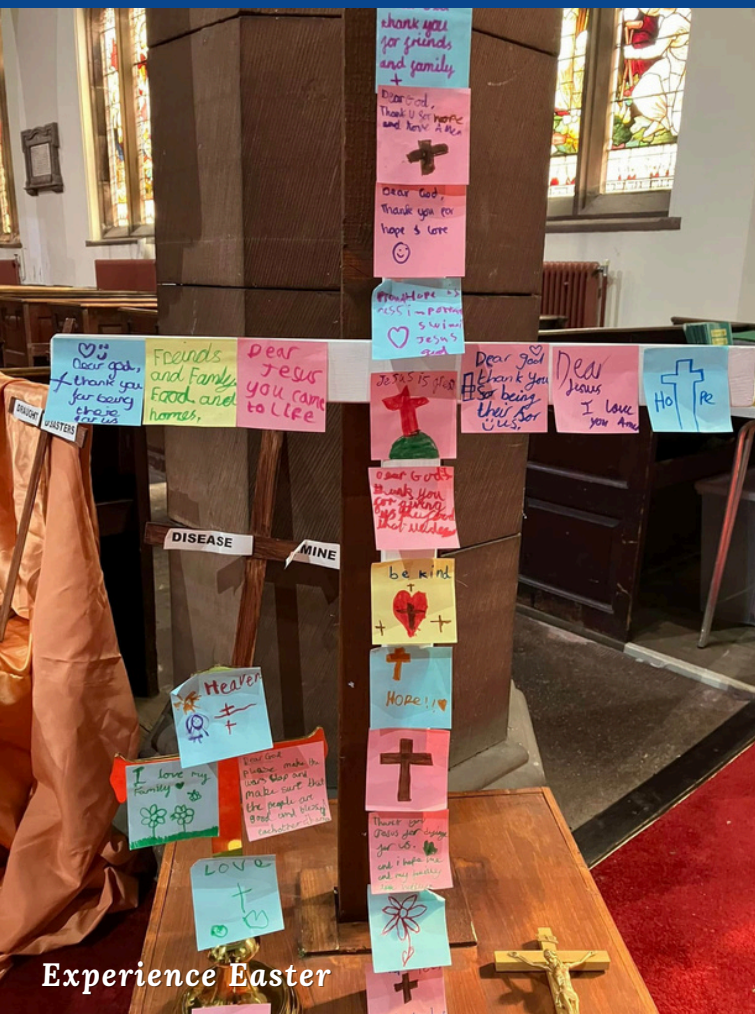 thank you
for friends
and family
Dear God,
Thank U for hope
and love Amen
Dear God,
Thank you for
hope & love
Jesus
God
Dear god,
thank you
for being
there
for us
Freinds
and Family
Food and
homes,
Dear
Jesus
you came
to life
Jesus is
Dear god
thank you
for being
their for
us
Dear
Jesus
I love
you Amen
Ho Pe
DRAUGHT
DISASTERS
Dear God
thank you
for giving
up
that
DISEASE
MINE
be kind
HOPE!!
Heaven
I love my
Family
Dear God
please make the
wars stop and
make sure that
the people are
good and
eachother
Thank you
Jesus for dying
for us.
and i hope me
and my family
LOVE
Experience Easter